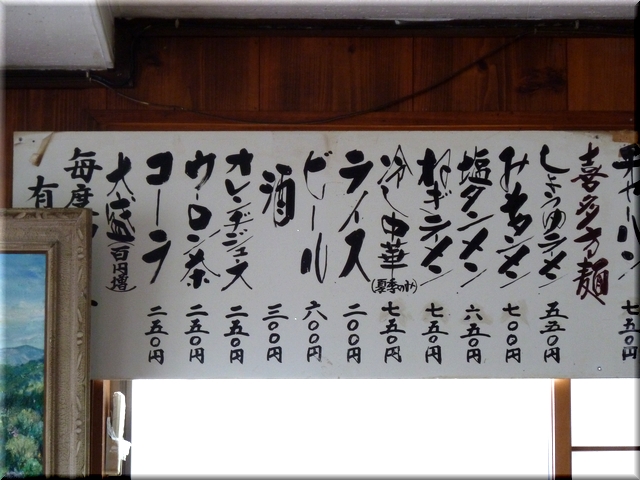 七五〇円
喜多方麺
しょうゆラーメン 五五〇円
みそタンメン 七〇〇円
塩タンメン 六五〇円
ねぎラーメン 七五〇円
冷し中華(夏季のみ) 七五〇円
ライス 二〇〇円
ビール 六〇〇円
酒 三〇〇円
オレンヂジュース 二五〇円
ウーロン茶 二五〇円
コーラ 二五〇円
大盛(百円増)
毎度
有